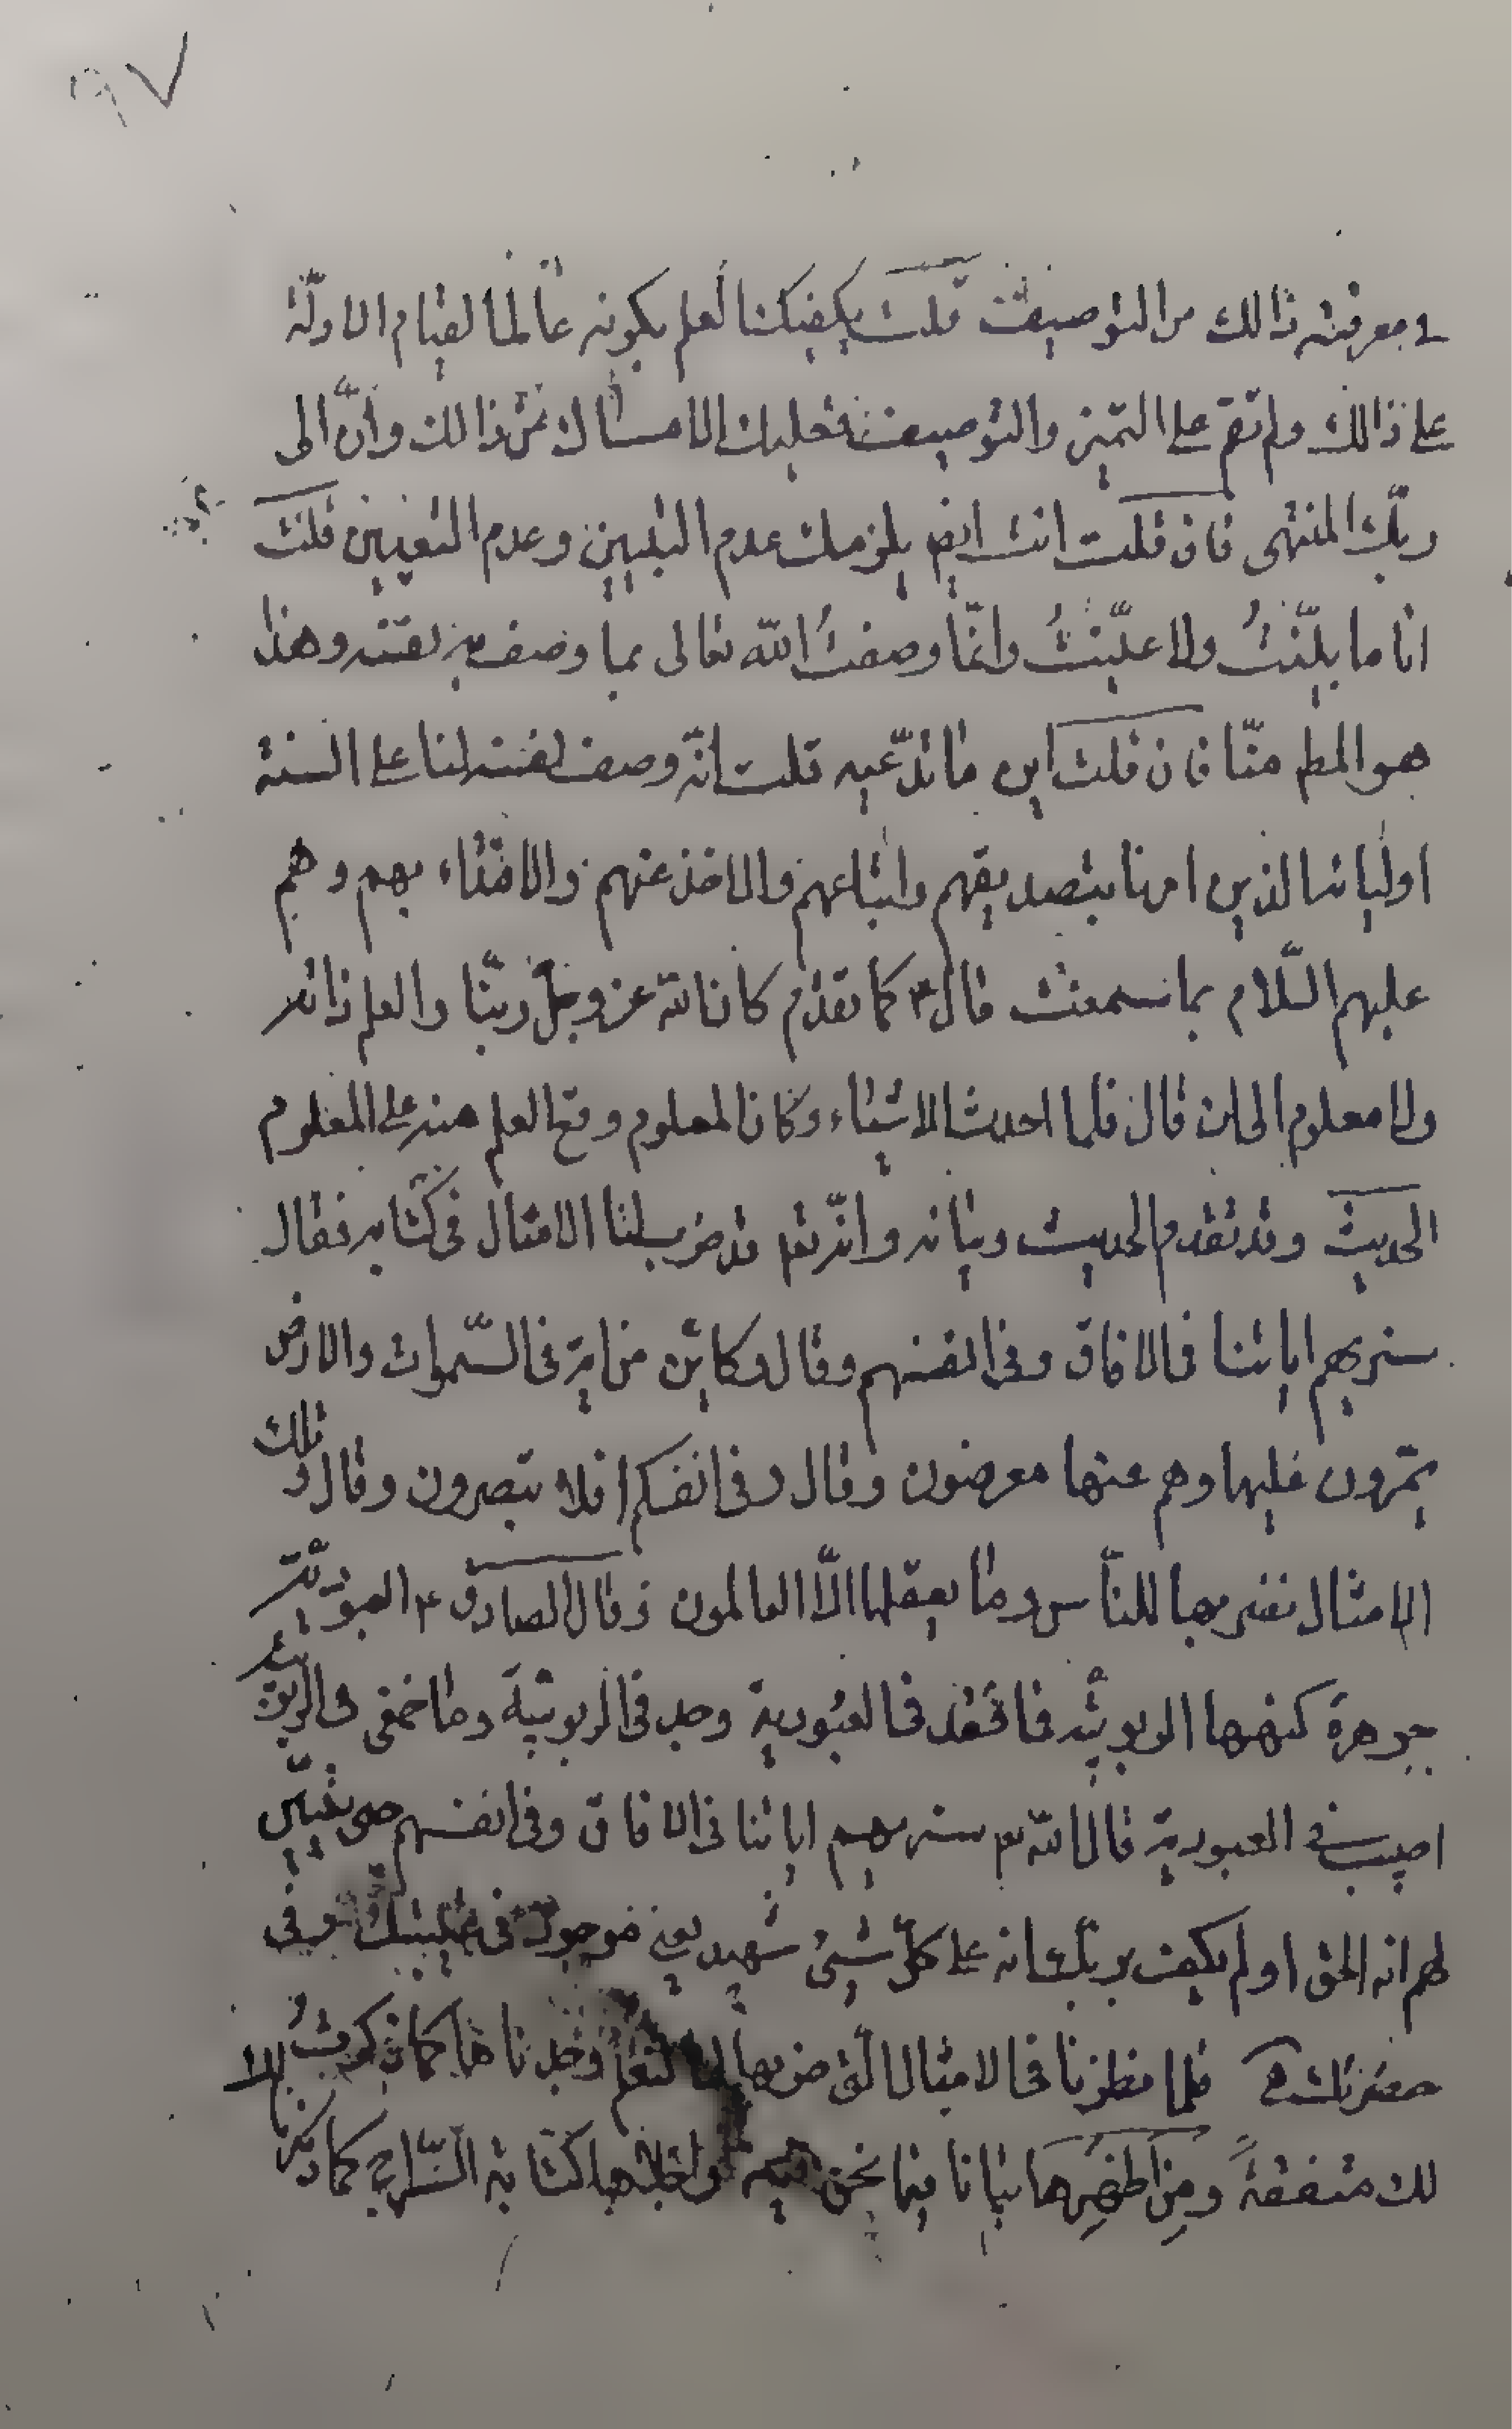 ٩٧
في معرفته ذالك من التوصيف قلت يكفيك العلم بكونه عالما لقيام الادلّة
على ذالك ولم تقم على التميز والتوصيف فعليك الامساك عن ذالك وانّ الى
ربّك المنتهى فان قلت انت ايض يلزمك عدم التبيين وعدم التعيين قلت
انا ما بيّنتُ ولا عيّنتُ وانمّا وصفتُ الله تعالى بما وصف به نفسه وهذا
هو المط منّا فان قلت اين ما تدّعيه قلت انّه وصف نفسه لنا على السنة
اوليائه الذين امرنا بتصديقهم واتباعهم والاخذ عنهم والاقتداء بهم وهم
عليهم السّلام بما سمعت قال ع كما تقدم كان الله عز وجلّ ربّنا والعلم ذاته
ولا معلوم الى ان قال فلما احدث الاشياء وكان المعلوم وقع العلم منه على المعلوم
الحديث وقد تقدم الحديث وبيانه وانّه تع قد ضرب لنا الامثال في كتابه فقال
سنريهم اياتنا في الافاق وفي انفسهم وقال وكاين من اية في السّموات والارض
يمرّون عليها وهم عنها معرضون وقال وفي انفسكم افلا تبصرون وقال وتلك
الامثال نضربها للناس وما يعقلها الّا العالمون وقال الصادق ع العبوديّة
جوهرة كنهها الربوبيّة فما فقد في العبُودية وجد في الربوبيّة وما خفى في الربوبيّة
اصيب في العبودية قال الله تع سنريهم اياتنا في الافاق وفي انفسهم حتى يتبيّن
لهم انه الحق اولم يكف بربّك انه على كلّ شيئ شهيد يعني موجود في غيبتك وفي
حضرتك ه فلما نظرنا في الامثال الّتي ضربها الله تعالى وجدناها كما ذكرتُ
لك متفقةً ومِن اظهرِها بيانا فيما نحن فيه واجلاها كتابة السّراج كما ذكرنا